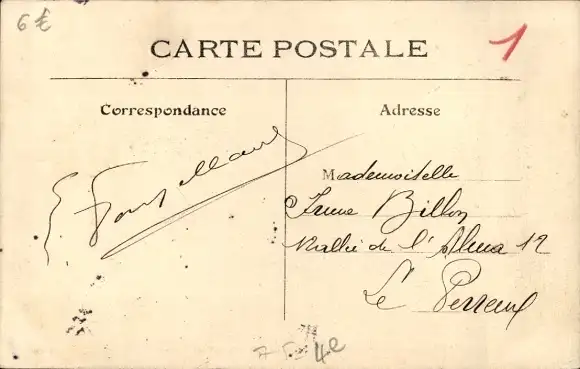 6 €
1
CARTE POSTALE
Correspondance
Adresse
Mademoiselle
Irène Billon
Allée de l'Alma 12
Le Perreux
4e